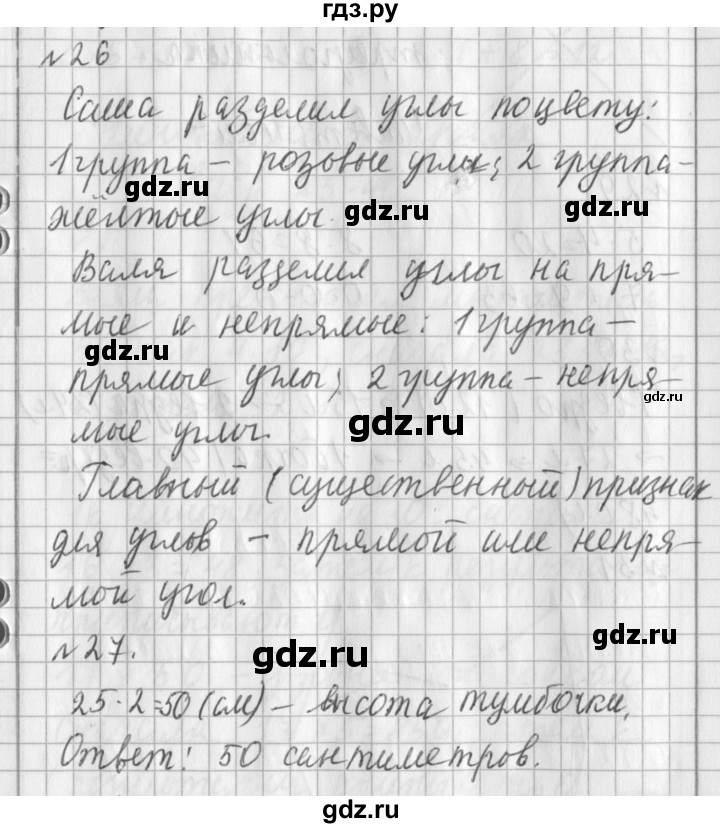 гдз.ру
№26
Саша разделил углы по цвету:
1 группа – розовые углы; 2 группа –
gdz.ru
жёлтые углы.
gdz.ru
gdz.ru
Валя разделил углы на пря-
мые и непрямые: 1 группа –
gdz.ru
прямые углы; 2 группа – непря-
gdz.ru
мые углы.
gdz.ru
Главный (существенный) признак
для углов – прямой или непря-
мой угол.
gdz.ru
№27.
gdz.ru
25·2=50 (см) – высота тумбочки.
Ответ: 50 сантиметров.
gdz.ru